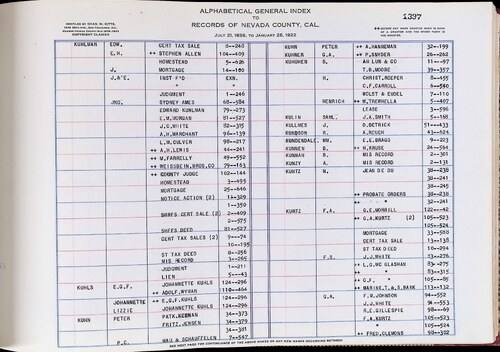 ALPHABETICAL GENERAL INDEX
TO
RECORDS OF NEVADA COUNTY, CAL.
JULY 21, 1856, TO JANUARY 28, 1922
COPYRIGHT CLAIMED
1397
KUHLMAN EDW. CERT TAX SALE 8—240
E.H. ++ STEPHEN ALLEN 104—409
HOMESTEAD 5—626
J. MORTGAGE 14—180
J.&E. INST F'D EXN.
" "
JUDGMENT 1—246
JNO. SYDNEY AMES 68—584
EDWARD KUHLMAN 79—273
E.M. MORGAN 81—527
J.C. WHITE 82—315
A.H. HANCHARD 96—139
L.M. CULVER 98—217
++ A.H. LEWIS 44—241
++ M. FARRELLY 49—552
++ WEISSBEIN BROS. CO 79—163
++ COUNTY JUDGE 102—144
HOMESTEAD 3—495
MORTGAGE 25—646
NOTICE ACTION (2) 11—329
1—350
SHRFS CERT SALE (2) 2—409
2—575
SHFFS DEED 81—527
CERT TAX SALES (2) 9—74
10—195
ST TAX DEED 8—256
MIS RECORD 3—265
JUDGMENT 1—211
LIEN 5—43
KUHLS E.G.F. JOHANNETTE KUHLS 124—296
++ ADOLF. NYMAN 110—464
JOHANNETTE ++ E.G.F. KUHLS 124—296
LIZZIE JOHANNETTE KUHLS 124—296
KUHN PETER PATK. KEENAN 34—373
FRITZ. JENSEN 34—379
34—381
P.C. MAU & SCHAUFFELEN 7—547
KUHN PETER ++ A. HANNEMAN 32—199
KUHNER G.A. ++ P. SNYDER 24—262
KUHUREN S. AH LUN & CO 11—97
T.B. MOORE 39—357
H. CHRIST. ROEPER 8—455
C.F. CARROLL 8—540
WOLST & EUDEL 7—110
HENRICH ++ M. TREMHELLA 5—407
LEASE 3—596
KULIN SAML. J.A. SMITH 5—168
KULLMER J. G. DETRICK 51—433
R. A. REUCH 43—524
KUNDENDALE, WM. E.E. BRAGG 9—223
KUNNEN B. ++ H. KRUSE 24—564
KUNMAN S. MIS RECORD 2—381
KUNTY A. MIS RECORD 2—131
KUNTZ N. JEAN DE DU 38—238
38—241
38—245
++ PROBATE ORDERS 38—238
++ " " 38—241
KUNTZ F.A. G.E. MCNILL 122—42
++ G.A. KURTZ (2) 105—523
105—524
MORTGAGE 33—588
CERT TAX SALE 13—138
ST TAX DEED 10—294
F.S. J.J. WHITE 53—276
++ L.O. MC GLASHAN 83—275
++ " 83—315
++ C.F. " 105—85
++ MARINE T.& S. BANK 113—132
G.A. F.W. JOHNSON 94—552
J.J. WHITE 94—553
R.E. GILLESPIE 98—69
F.A. KURTZ 105—523
" 105—524
++ FRED. CLEMONS 58—302